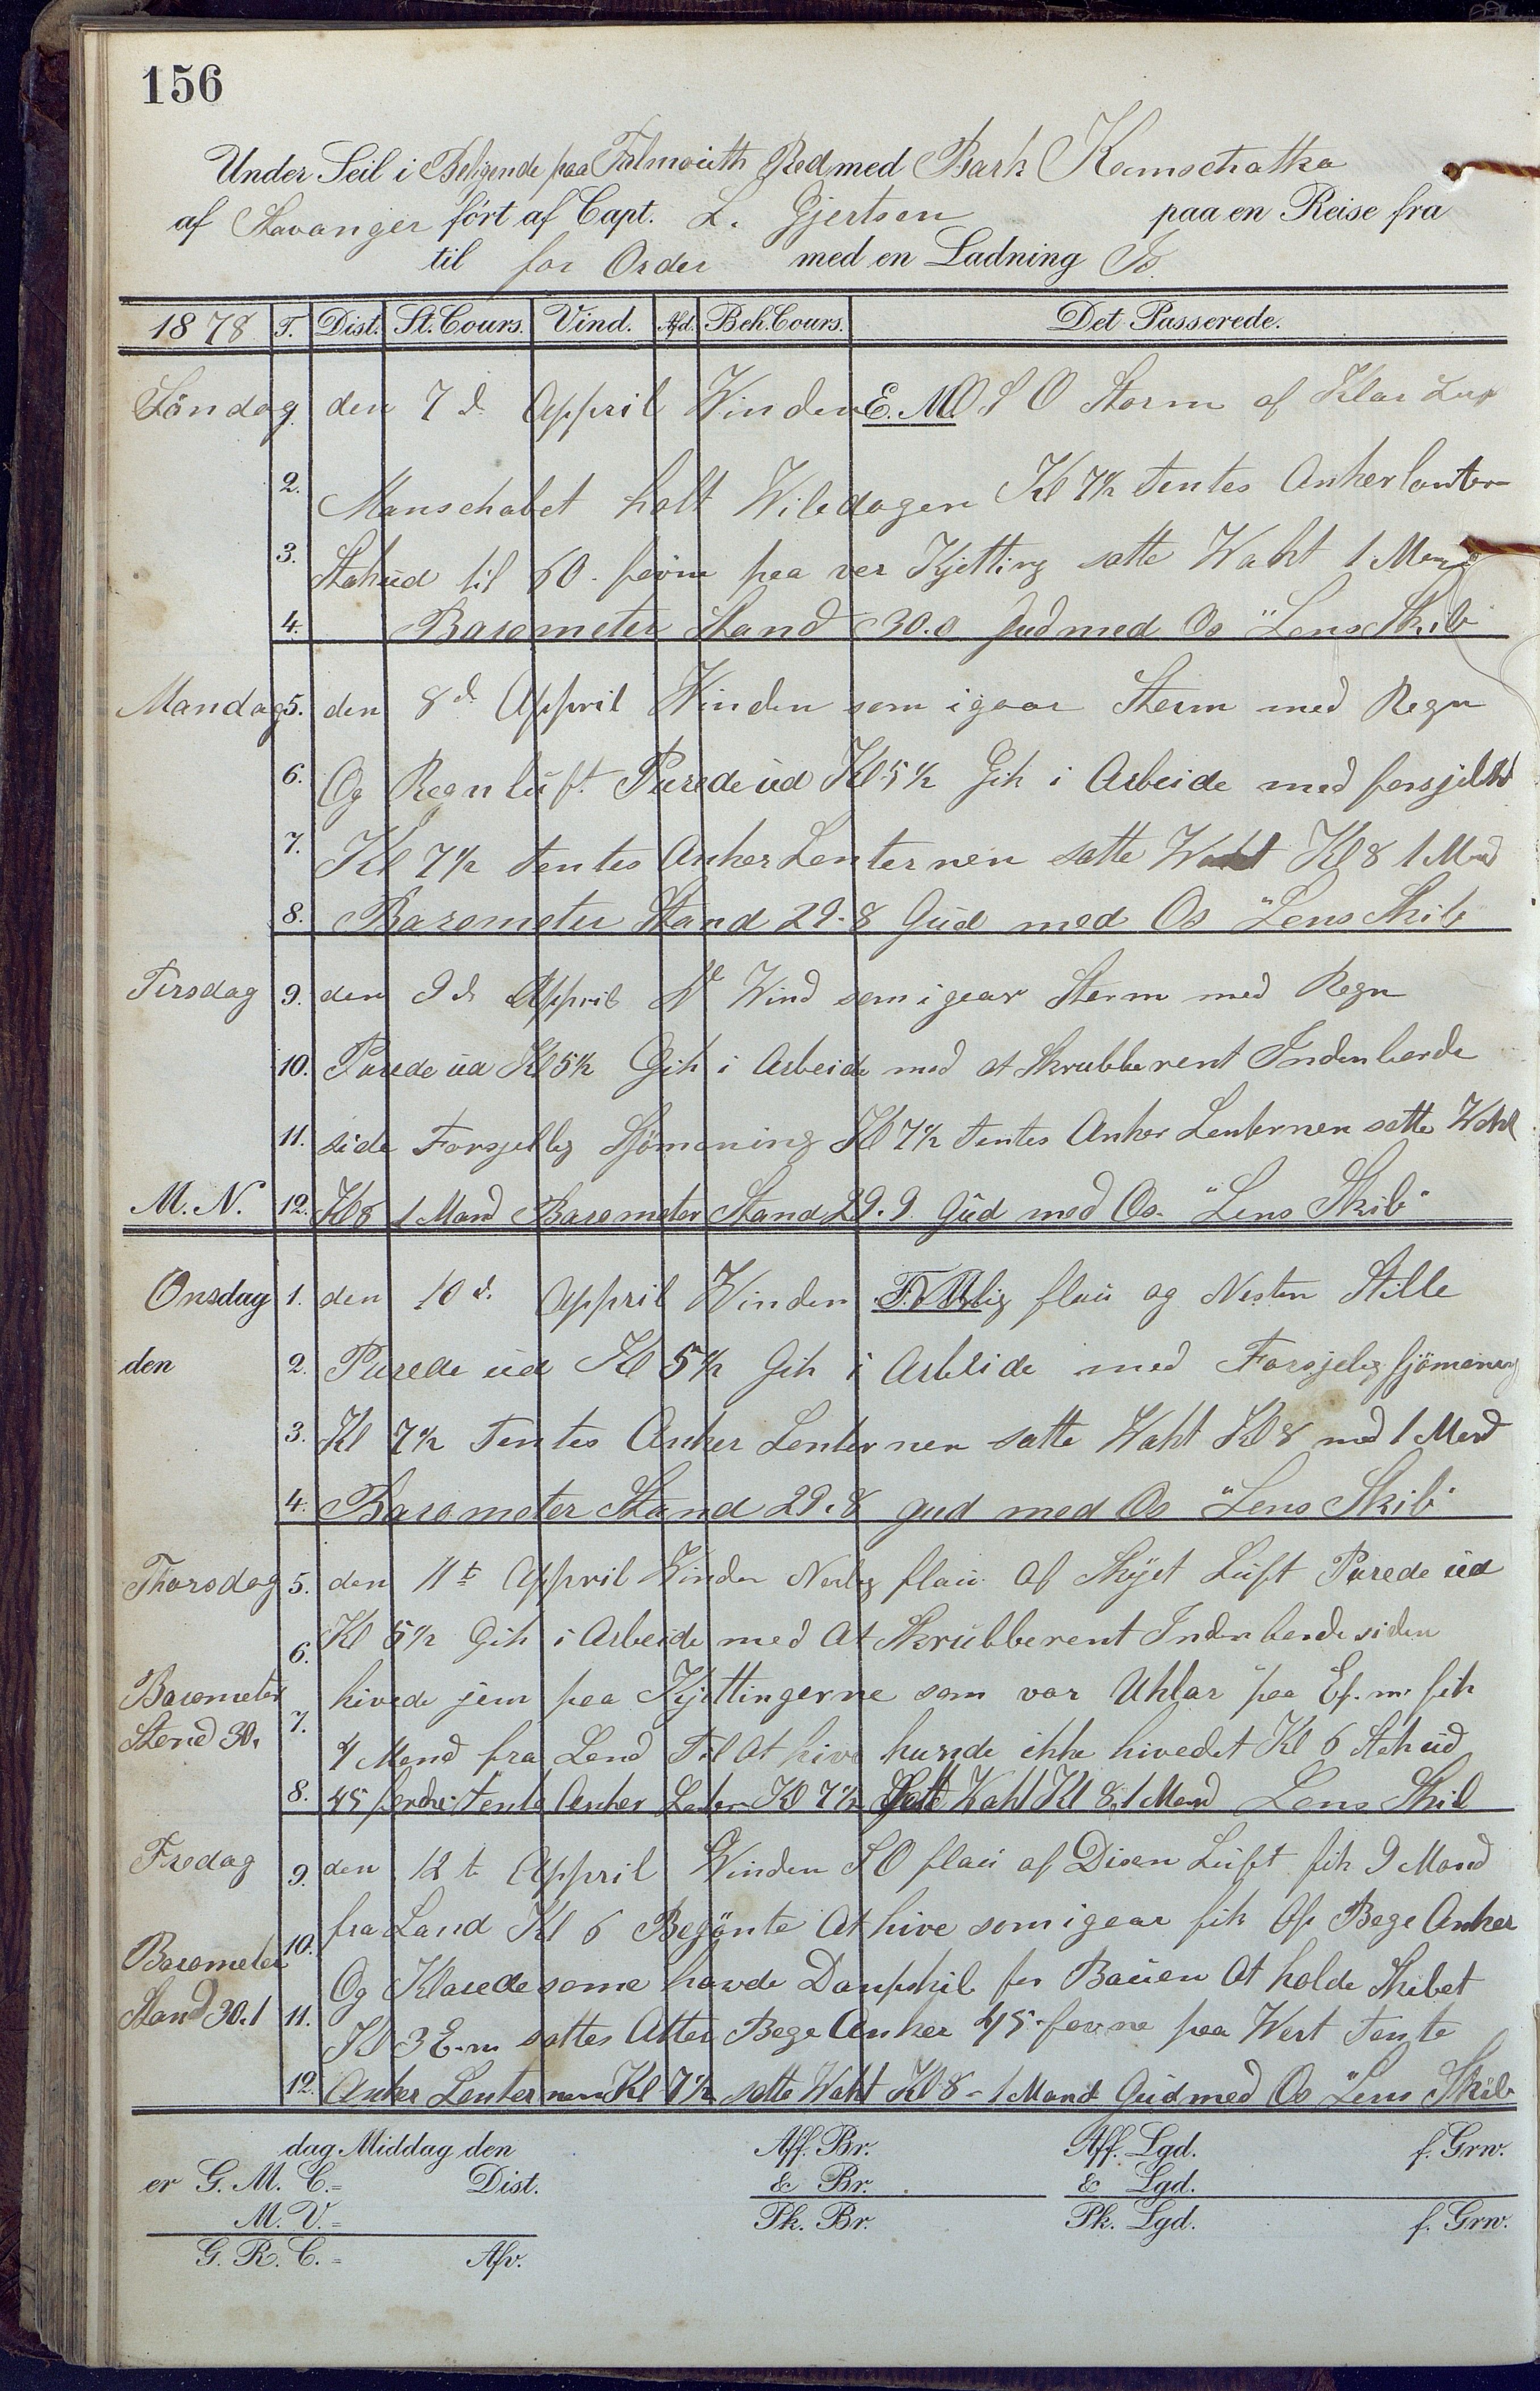 156
Under Seil i Beligende paa Falmouth Red med Bark Kamschatka
af Stavanger ført af Capt. L. Gjertsen paa en Reise fra
til for Order med en Ladning Is
1878 T. Dist. St. Cours. Vind. Afd. Beh. Cours. Det Passerede.
Søndag den 7d. Appril Winden E. M. O S O Storm af Klar Luf
2. Manschabet holt Wiledagen Kl 7½ tentes Ankerlanter
3. Stak ud til 60. favne paa ver Kjetting satte Waht 1 Mand
4. Barometer Stand 30.0 Gud med Os "Lens Skib
Mandag 5. den 8d. Appril Winden som igaar Storm med Regn
6. Og Regnluft. Purede ud Kl 5½ Gik i Arbeide med forsjeldt
7. Kl 7½ tentes Anker Lenternen satte Waht Kl 8 1 Mand
8. Barometer Stand 29.8 Gud med Os "Lens Skib
Tirsdag 9. den 9d. Appril Wind som igaar Storm med Regn
10. Purede ud Kl 5½ Gik i Arbeide med at Skrubbe rent Indenborde
11. side Forsjellig Sjömaning Kl 7½ tentes Anker Lenternen satte Waht
M. N. 12. Kl 8 1 Mand Barometer Stand 29.9. Gud med Os. "Lens Skib"
Onsdag 1. den 10d. Appril Winden F. M. flau og Nesten Stille
den 2. Purede ud Kl 5½ Gik i Arbeide med Forsjelig Sjömaning
3. Kl 7½ Tentes Anker Lenternen satte Waht Kl 8 med 1 Mand
4. Barometer Stand 29.8 gud med Os "Lens Skib"
Thorsdag 5. den 11t Appril Winden Nerlig flau af Skyet Luft Purede ud
6. Kl 5½ Gik i Arbeide med At Skrubbe rent Indenborde siden
Barometer hivede jem paa Kjettingerne som var Uklar paa Ef. m. fik
Stand 30. 7. 4 Mand fra Land Til At hive kunde ikke hivedet Kl 6 Stak ud
8. 45 tente Anker Kl 7½ Satte Waht Kl 8. 1 Mand Lens Skib
Fredag 9. den 12t Appril Winden S O flau af Disen Luft fik 9 Mand
10. fra Land Kl 6 Begönte At hive som igaar fik Op Bege Anker
Barometer Og Klarede some havde Dampskib for Bauen At holde Skibet
Stand 30.1 11. Kl 3 E.m sattes Atter Bege Anker 45. favne paa Wert tente
12. Anker Lenternen Kl 7½ satte Waht Kl 8 - 1 Mand Gud med Os "Lens Skib
dag Middag den Aff. Br. Aff. Lgd. f. Grw.
er G. M. C. = Dist. & Br. & Lgd.
M. V. = Pk. Br. Pk. Lgd. f. Grw.
G. R. C. = Afv.